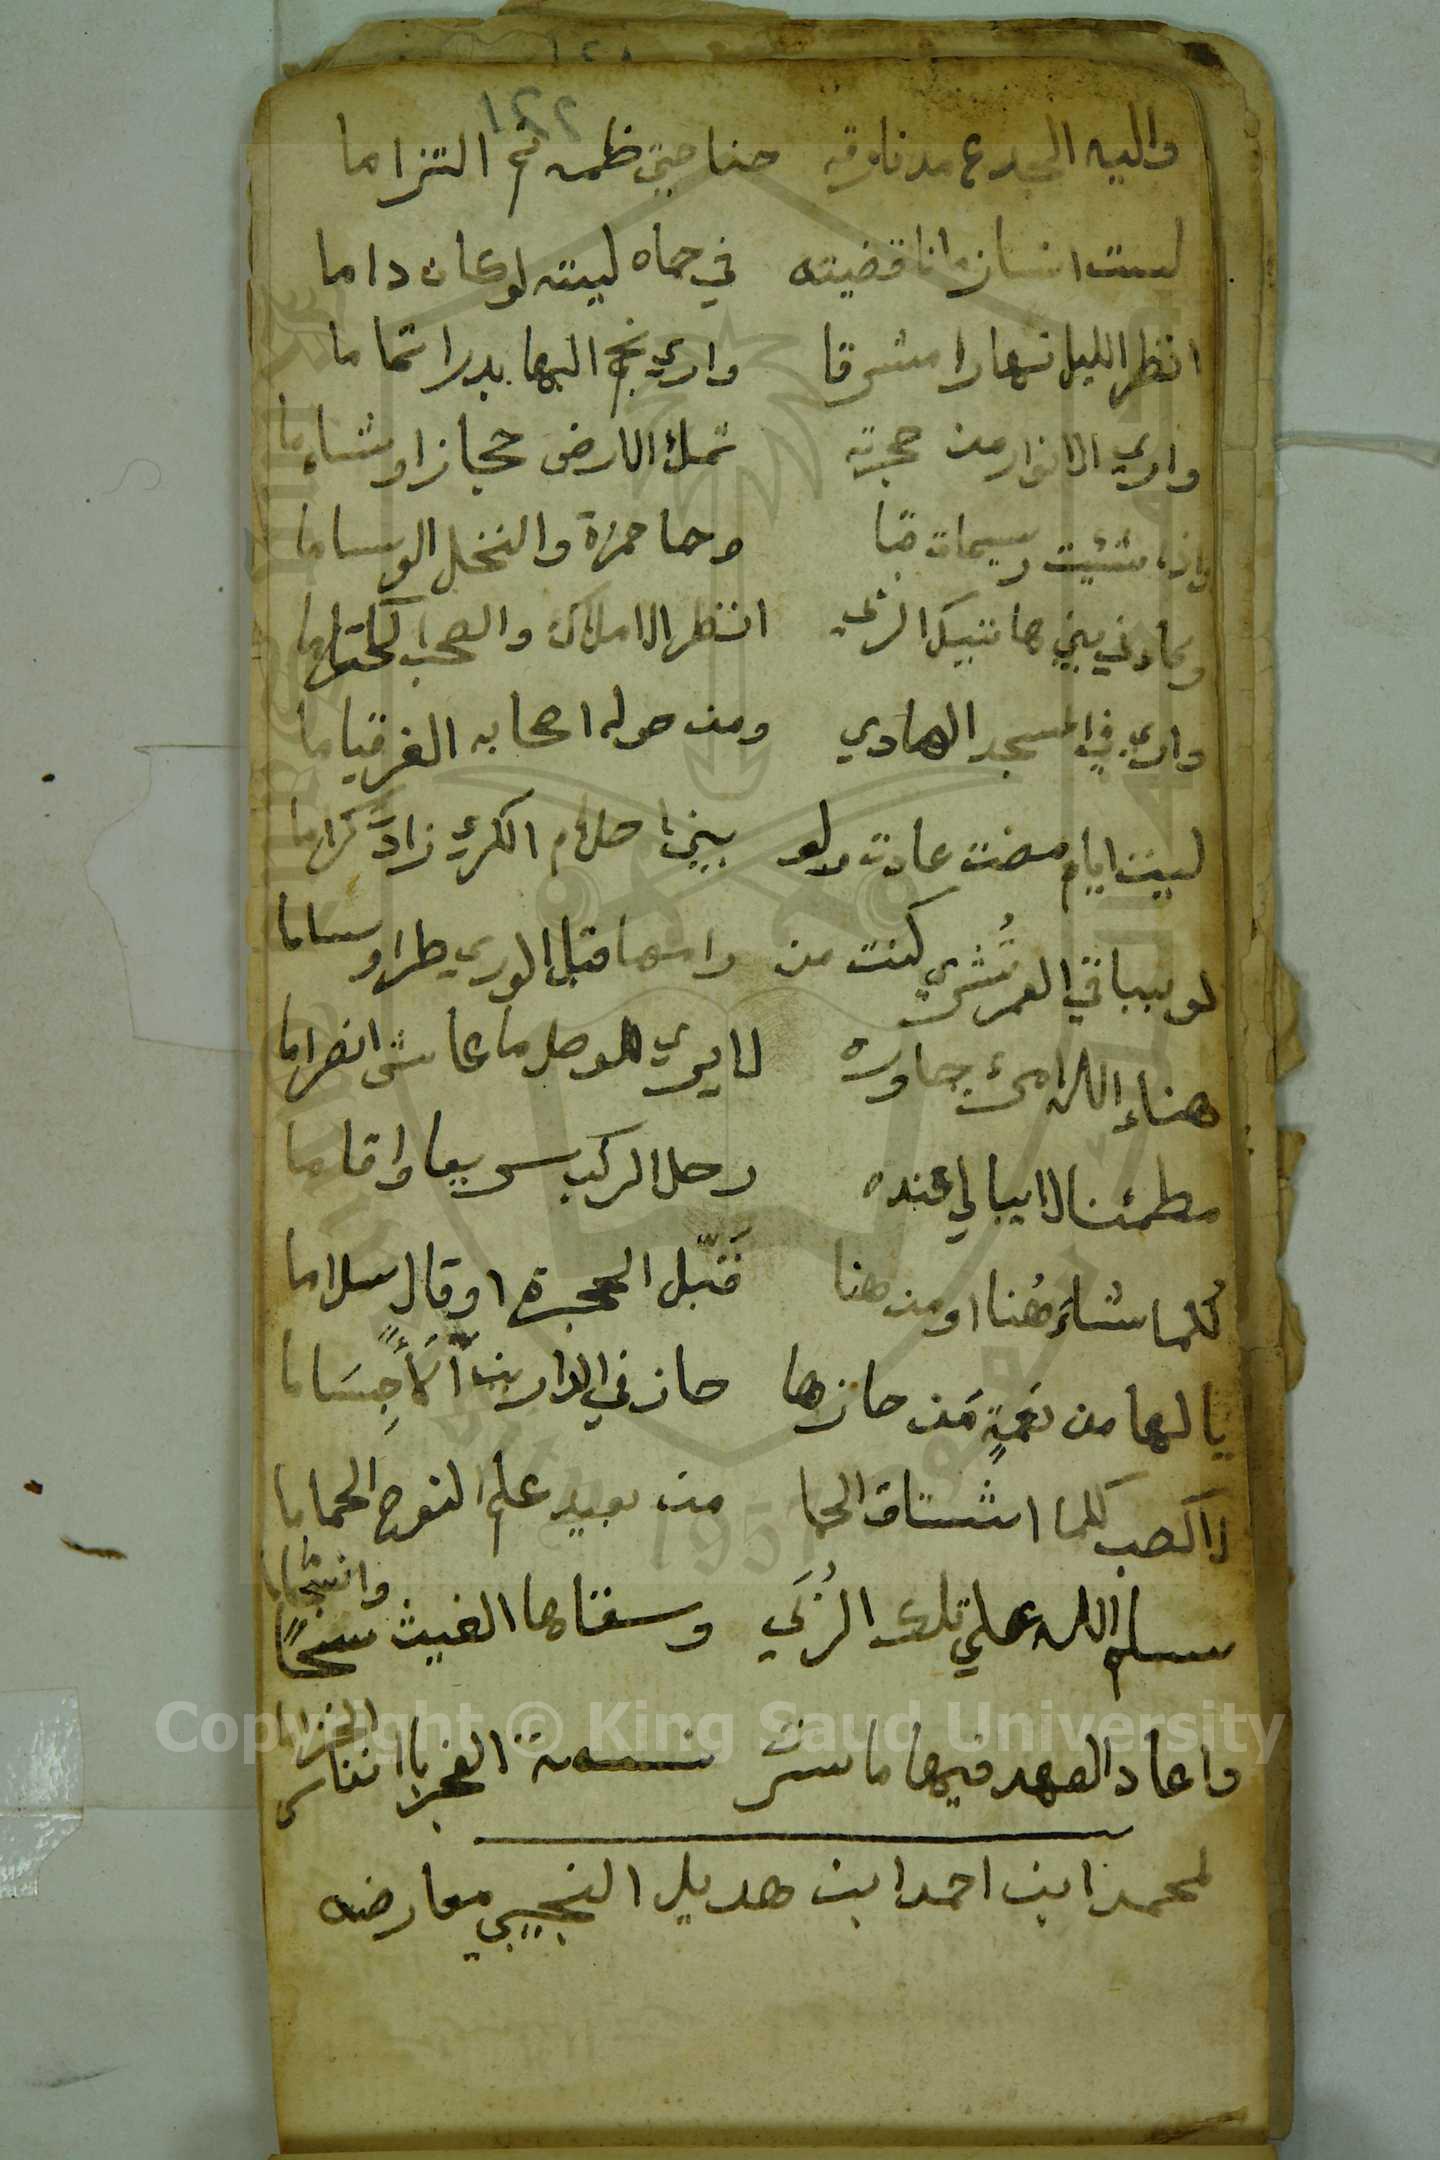 ١٤٢
واليه الجدع مذ فارقه حنا حتى ظمه ثم التزاما
ليت انسازمانا قضيته في حماه ليته لو كان داما
انظر الليل نهارا مشرقا واري نجم البها بدرا تماما
واري الانوار من حجرته تملؤ الارض حجازا وشاما
واذا شئت رسيمات قبا وحما حمزة والنخل الوساما
ها تيك الربي انظر الاملاك والصحب
واري في المسجد الهادي ومن حوله اصحابه الغر قياما
ليت ايام مضت عادت ولو بيننا احلام الكرى زاد كراما
لو بباقي العمر تُشرى كنت من رامها قبل الورى طرا وساما
هناء الله امرئ جاوره لا يرى للوصل ما عاش انصراما
مطمئنا لا يبالي عنده رحل الركب سريعا واقاما
كُلما شاءَ هُنا او من هنا قَبّل الحجرة او قال سلاما
يا لها من نعمةٍ مَن حازها حاز في الدارين آلاءً جِسَاما
كلما اشتاق الحما من بعيد علم النوح الحماما
سلم الله على تلك الرُبَى وسقاها الغيث سحًّا وانسجاما
واعاد العهد فيها ما سرَت نسمة الفجر بانفاس الخزاما
لمحمد ابن احمد ابن هديل النجيبي معارضه
Copyright © King Saud University
1957